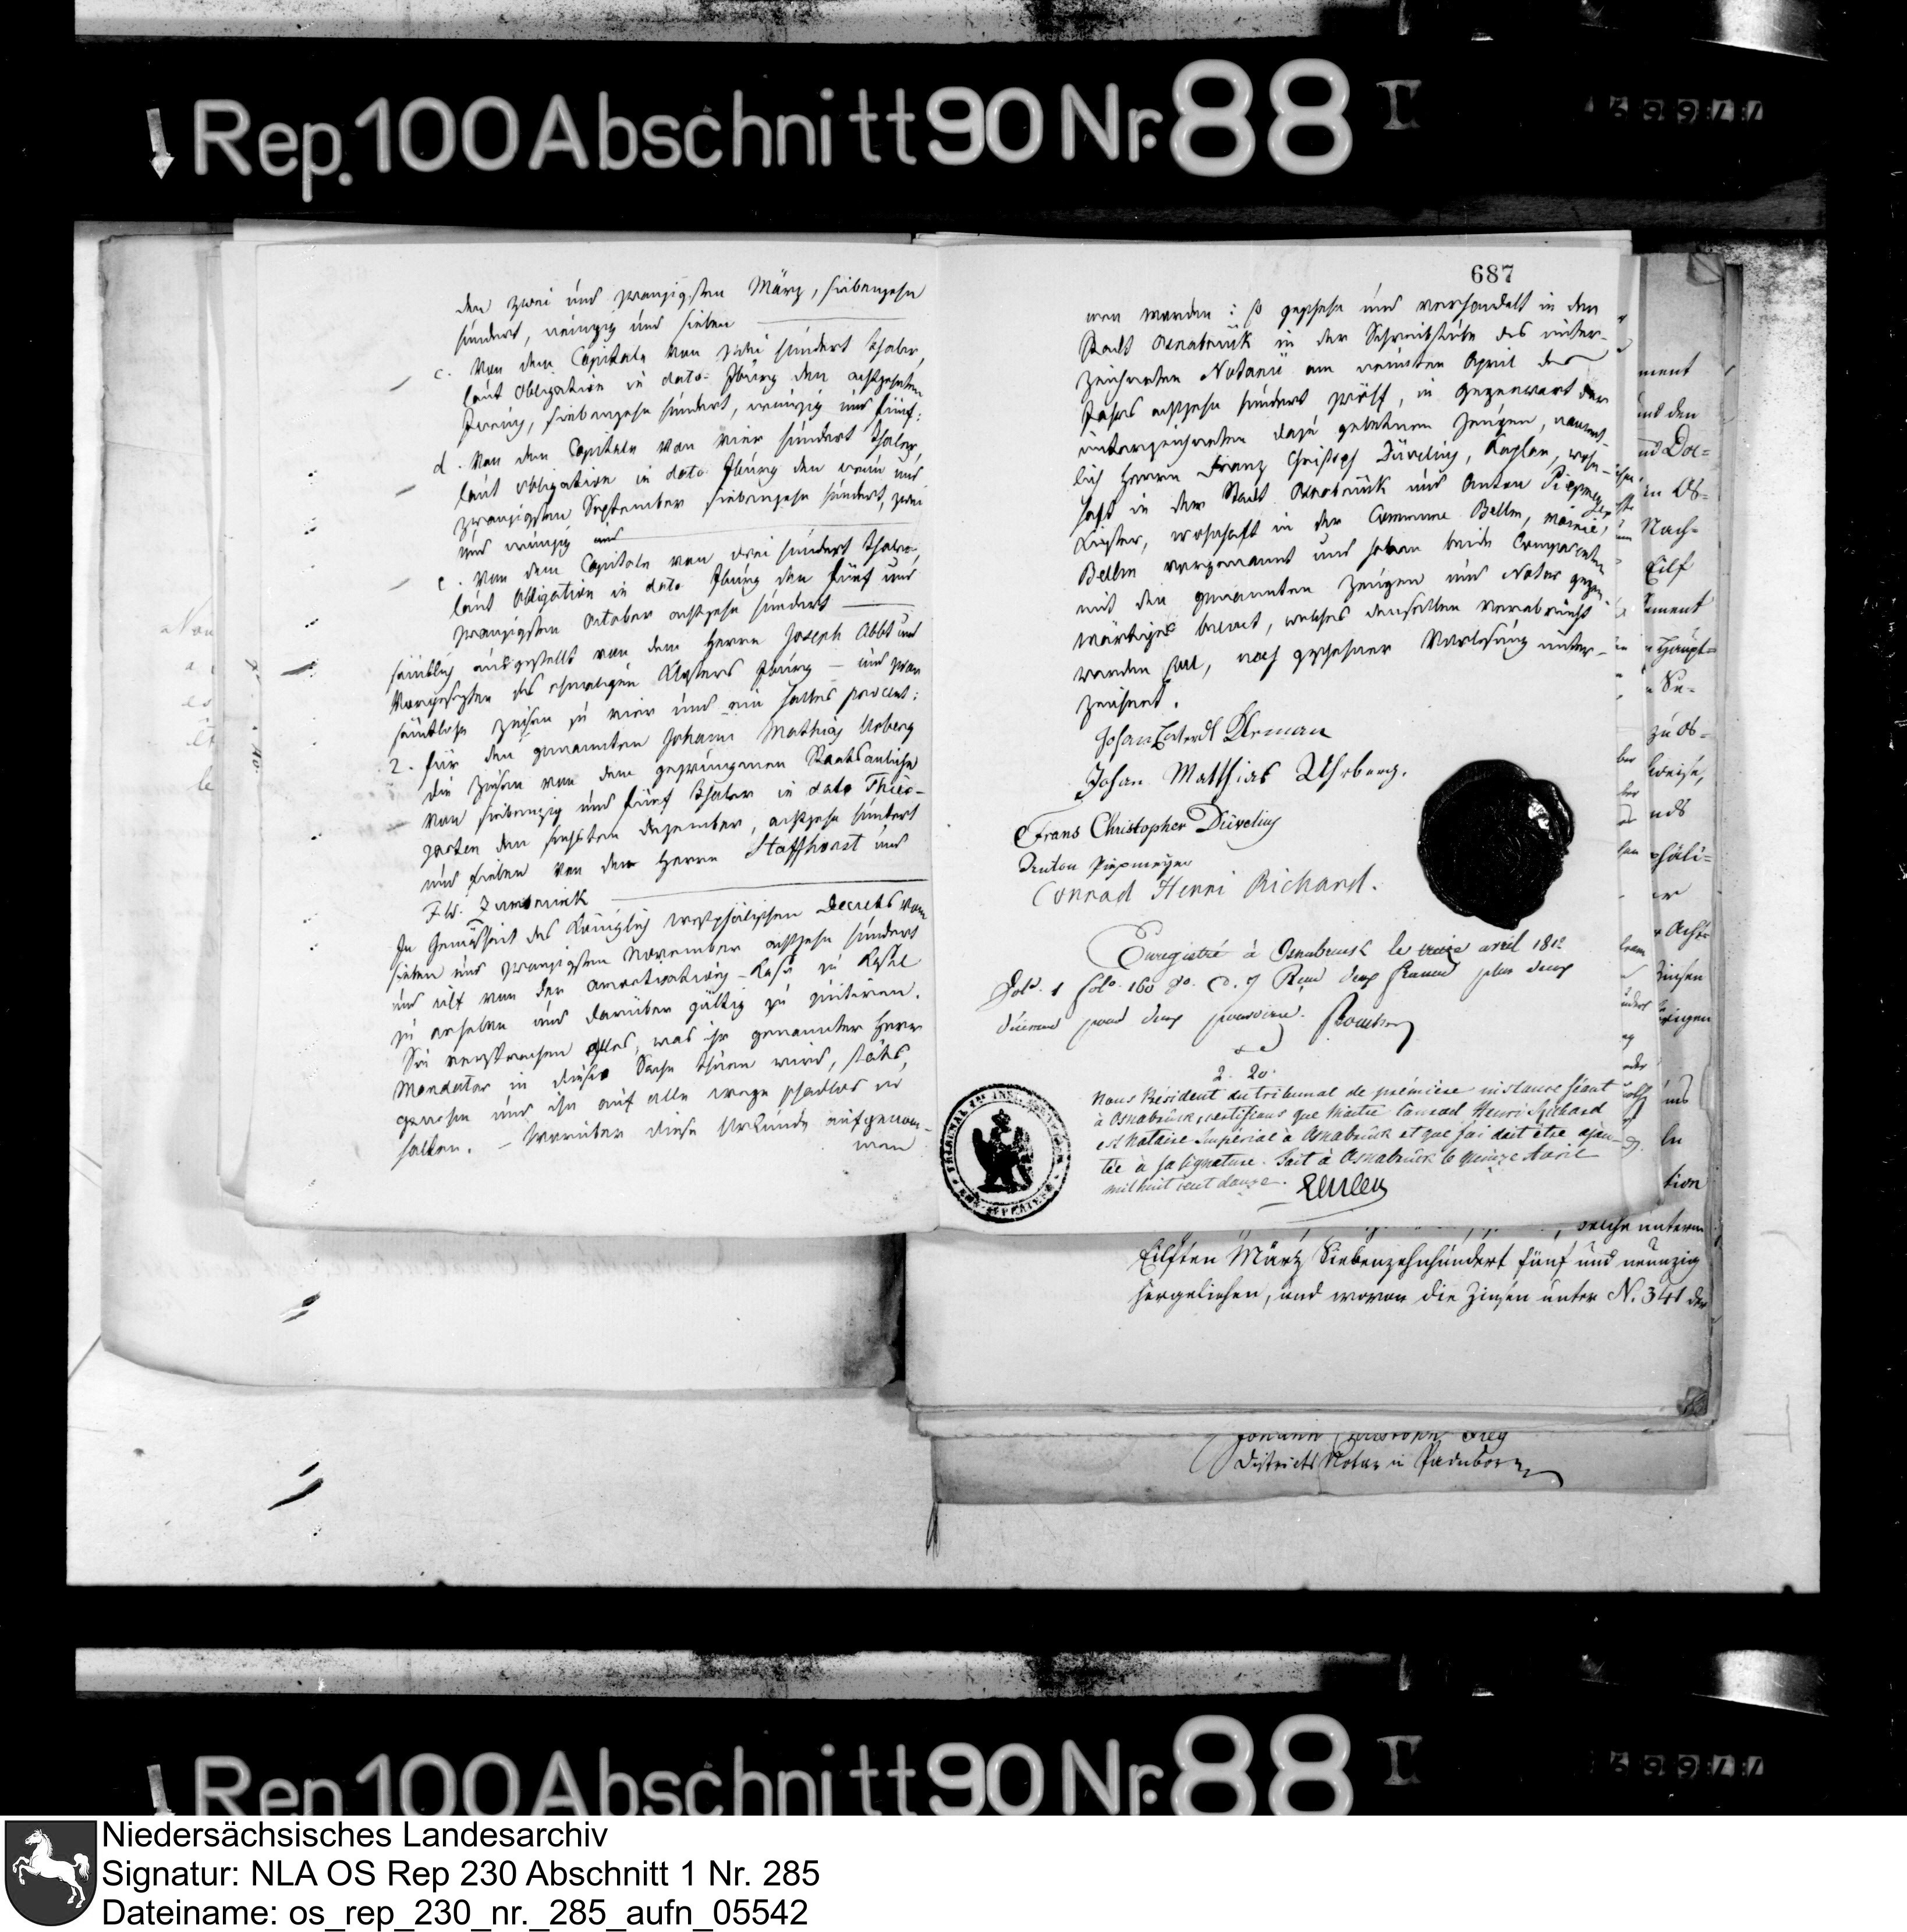 Rep. 100 Abschnitt 90 Nr. 88 I
den zwei und zwanzigsten März, siebenzehn
hundert, neunzig und sieben
c. Von dem Capitale von zwei hundert Thaler,
laut Obligation in dato Iburg den achtzehnten
siebenzehn hundert, neunzig und fünf;
d. Von dem Capitale von vier hundert Thaler,
laut Obligation in dato Iburg den neun und
zwanzigsten September siebenzehn hundert, zwei
und neunzig und
e. Von dem Capitale von drei hundert Thaler,
laut Obligation in dato Iburg den fünf und
zwanzigsten October achtzehn hundert
sämtlich ausgestellt von dem Herrn Joseph Abbt und
Vorgesezten des ehmaligen Klosters Iburg – und zwar
sämtliche Zinsen zu vier und ein halbes procent;
2. für den genannten Johann Mathias Urberg
die Zinsen von dem gezwungenen Staatsanleihe
von siebenzig und fünf Thaler in dato Thier-
garten den sechsten Dezember, achtzehn hundert
und sieben von dem Herrn Staffhorst und
F. W.
In Gemäsheit des Königlich westphälischen Decrets vom
sieben und zwanzigsten November achtzehn hundert
und eilf von der Amortisations-Kasse zu Kassel
zu erheben und darüber gültig zu quitiren.
Sie versprechen alles, was ihr genannter Herr
Mandatar in dieser Sache thuen wird, stäts
genehm und ihn auf alle Wege schadlos zu
halten. – Worüber diese Urkunde aufgenom-
men
687
men worden; so geschehn und verhandelt in der
Stadt Osnabrück in der Schreibstube des unter-
zeichneten Notarii am neunten April des
Jahrs achtzehn hundert zwölf, in Gegenwart der
unterzeichneten dazu gebetenen Zeugen, nament-
lich Herrn Franz Christoph Düvelius, Kaplan, wohn-
haft in der Stadt Osnabrück und Anton Piepmeyer
Küster, wohnhaft in der Commune Bellm, Mairie
Bellm vorgenannt und haben beide Comparenten
mit den genannten Zeugen und Notar gegen-
wärtiges brevet, welches denselben verabreicht
worden ist, nach geschehner Vorlesung unter-
zeichnet.
Johan
Johan Matthias Uhrberg.
Frans Christopher Düvelius
Anton Piepmeyer
Conrad Henri Richard.
Enregistré à Osnabruck le treize avril 1812
Vol. 1 fol. 160 Vo. C. 7 Reçu deux francs plus deux
décimes pour deux pouvoirs.
2. 20.
Nous Président du tribunal de première instance séant
à Osnabrück, certifions que Maitre Conrad Henri Richard
est Notaire Imperial à Osnabrück et que foi doit être ajou-
tée à sa signature. Fait à Osnabrück le quinze Avril
mil huit cent douze.
ment
und den
Nach-
Eilf
Haupt-
zu Os-
Zinsen
tion
welche unterm
Eilften März Siebenzehnhundert fünf und neunzig
hergeliehen, und wovon die Zinsen unter N. 341 der
Johann Christoph
Districts Notar in Paderborn
Rep. 100 Abschnitt 90 Nr. 88 I
Niedersächsisches Landesarchiv
Signatur: NLA OS Rep 230 Abschnitt 1 Nr. 285
Dateiname: os_rep_230_nr._285_aufn_05542